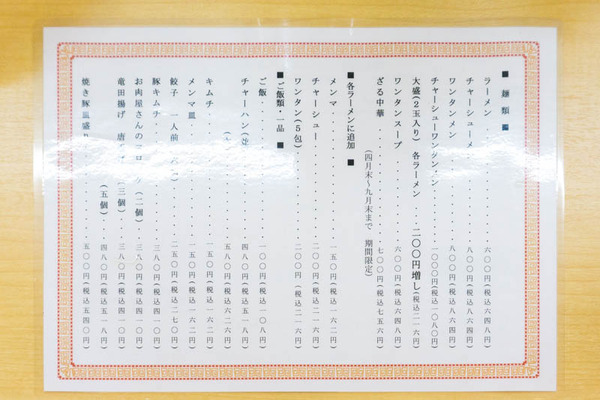 ■ 麺類 ■
ラーメン 六〇〇円(税込六四八円)
チャーシューメン 八〇〇円(税込八六四円)
ワンタンメン 八〇〇円(税込八六四円)
チャーシューワンタンメン 一〇〇〇円(税込一〇八〇円)
大盛(2玉入り) 各ラーメン 二〇〇円増し(税込二一六円)
ワンタンスープ 六〇〇円(税込六四八円)
ざる中華 七〇〇円(税込七五六円)
(四月末〜九月末まで 期間限定)
■ 各ラーメンに追加 ■
メンマ 一五〇円(税込一六二円)
チャーシュー 二〇〇円(税込二一六円)
ワンタン(5包) 二〇〇円(税込二一六円)
■ ご飯類・一品 ■
ご飯 一〇〇円(税込一〇八円)
チャーハン 四八〇円(税込五一八円)
五八〇円(税込六二六円)
キムチ 一五〇円(税込一六二円)
メンマ皿 一五〇円(税込一六二円)
餃子 一人前 二五〇円(税込二七〇円)
豚キムチ 三八〇円(税込四一〇円)
お肉屋さんのコロッケ(二個) 三八〇円(税込四一〇円)
竜田揚げ 唐 (三個) 三八〇円(税込四一〇円)
(五個) 四八〇円(税込五一八円)
焼き豚皿盛り 五〇〇円(税込五四〇円)